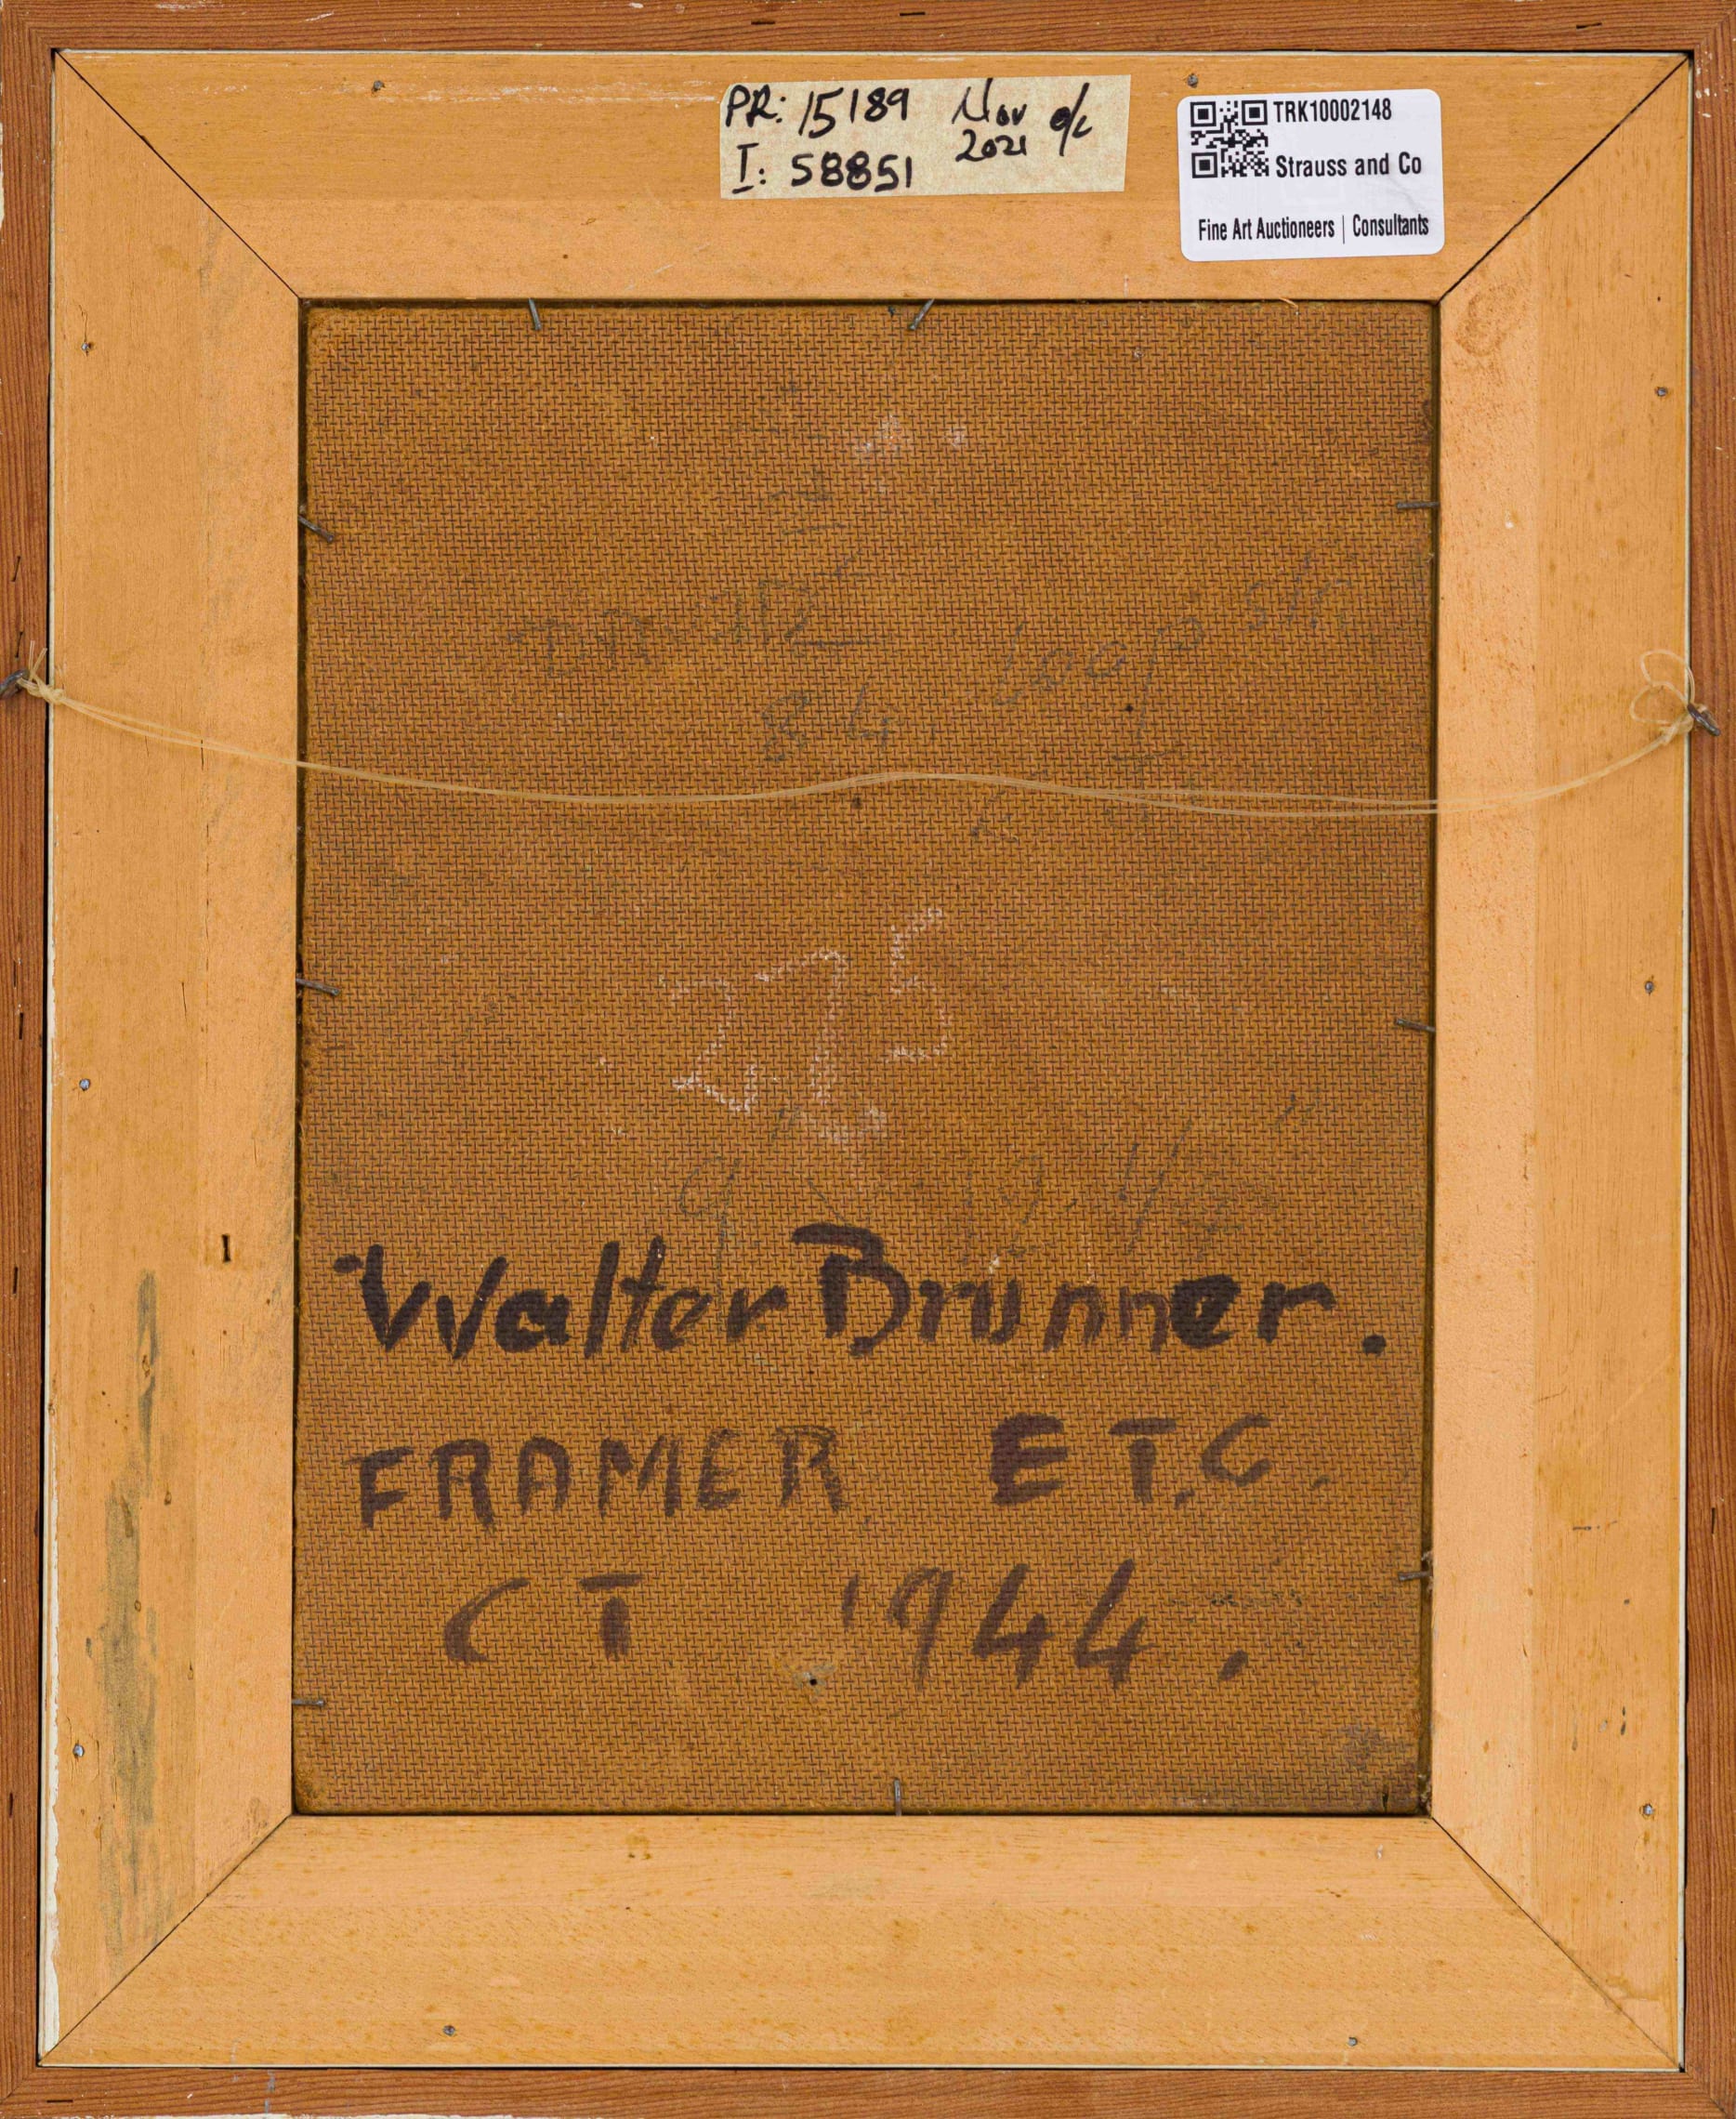 PR: 15189 Nov 2021 o/c
I: 58851
TRK10002148
Strauss and Co
Fine Art Auctioneers | Consultants
84
Loop
275
Walter Brunner.
FRAMER E T.C.
CT 1944.